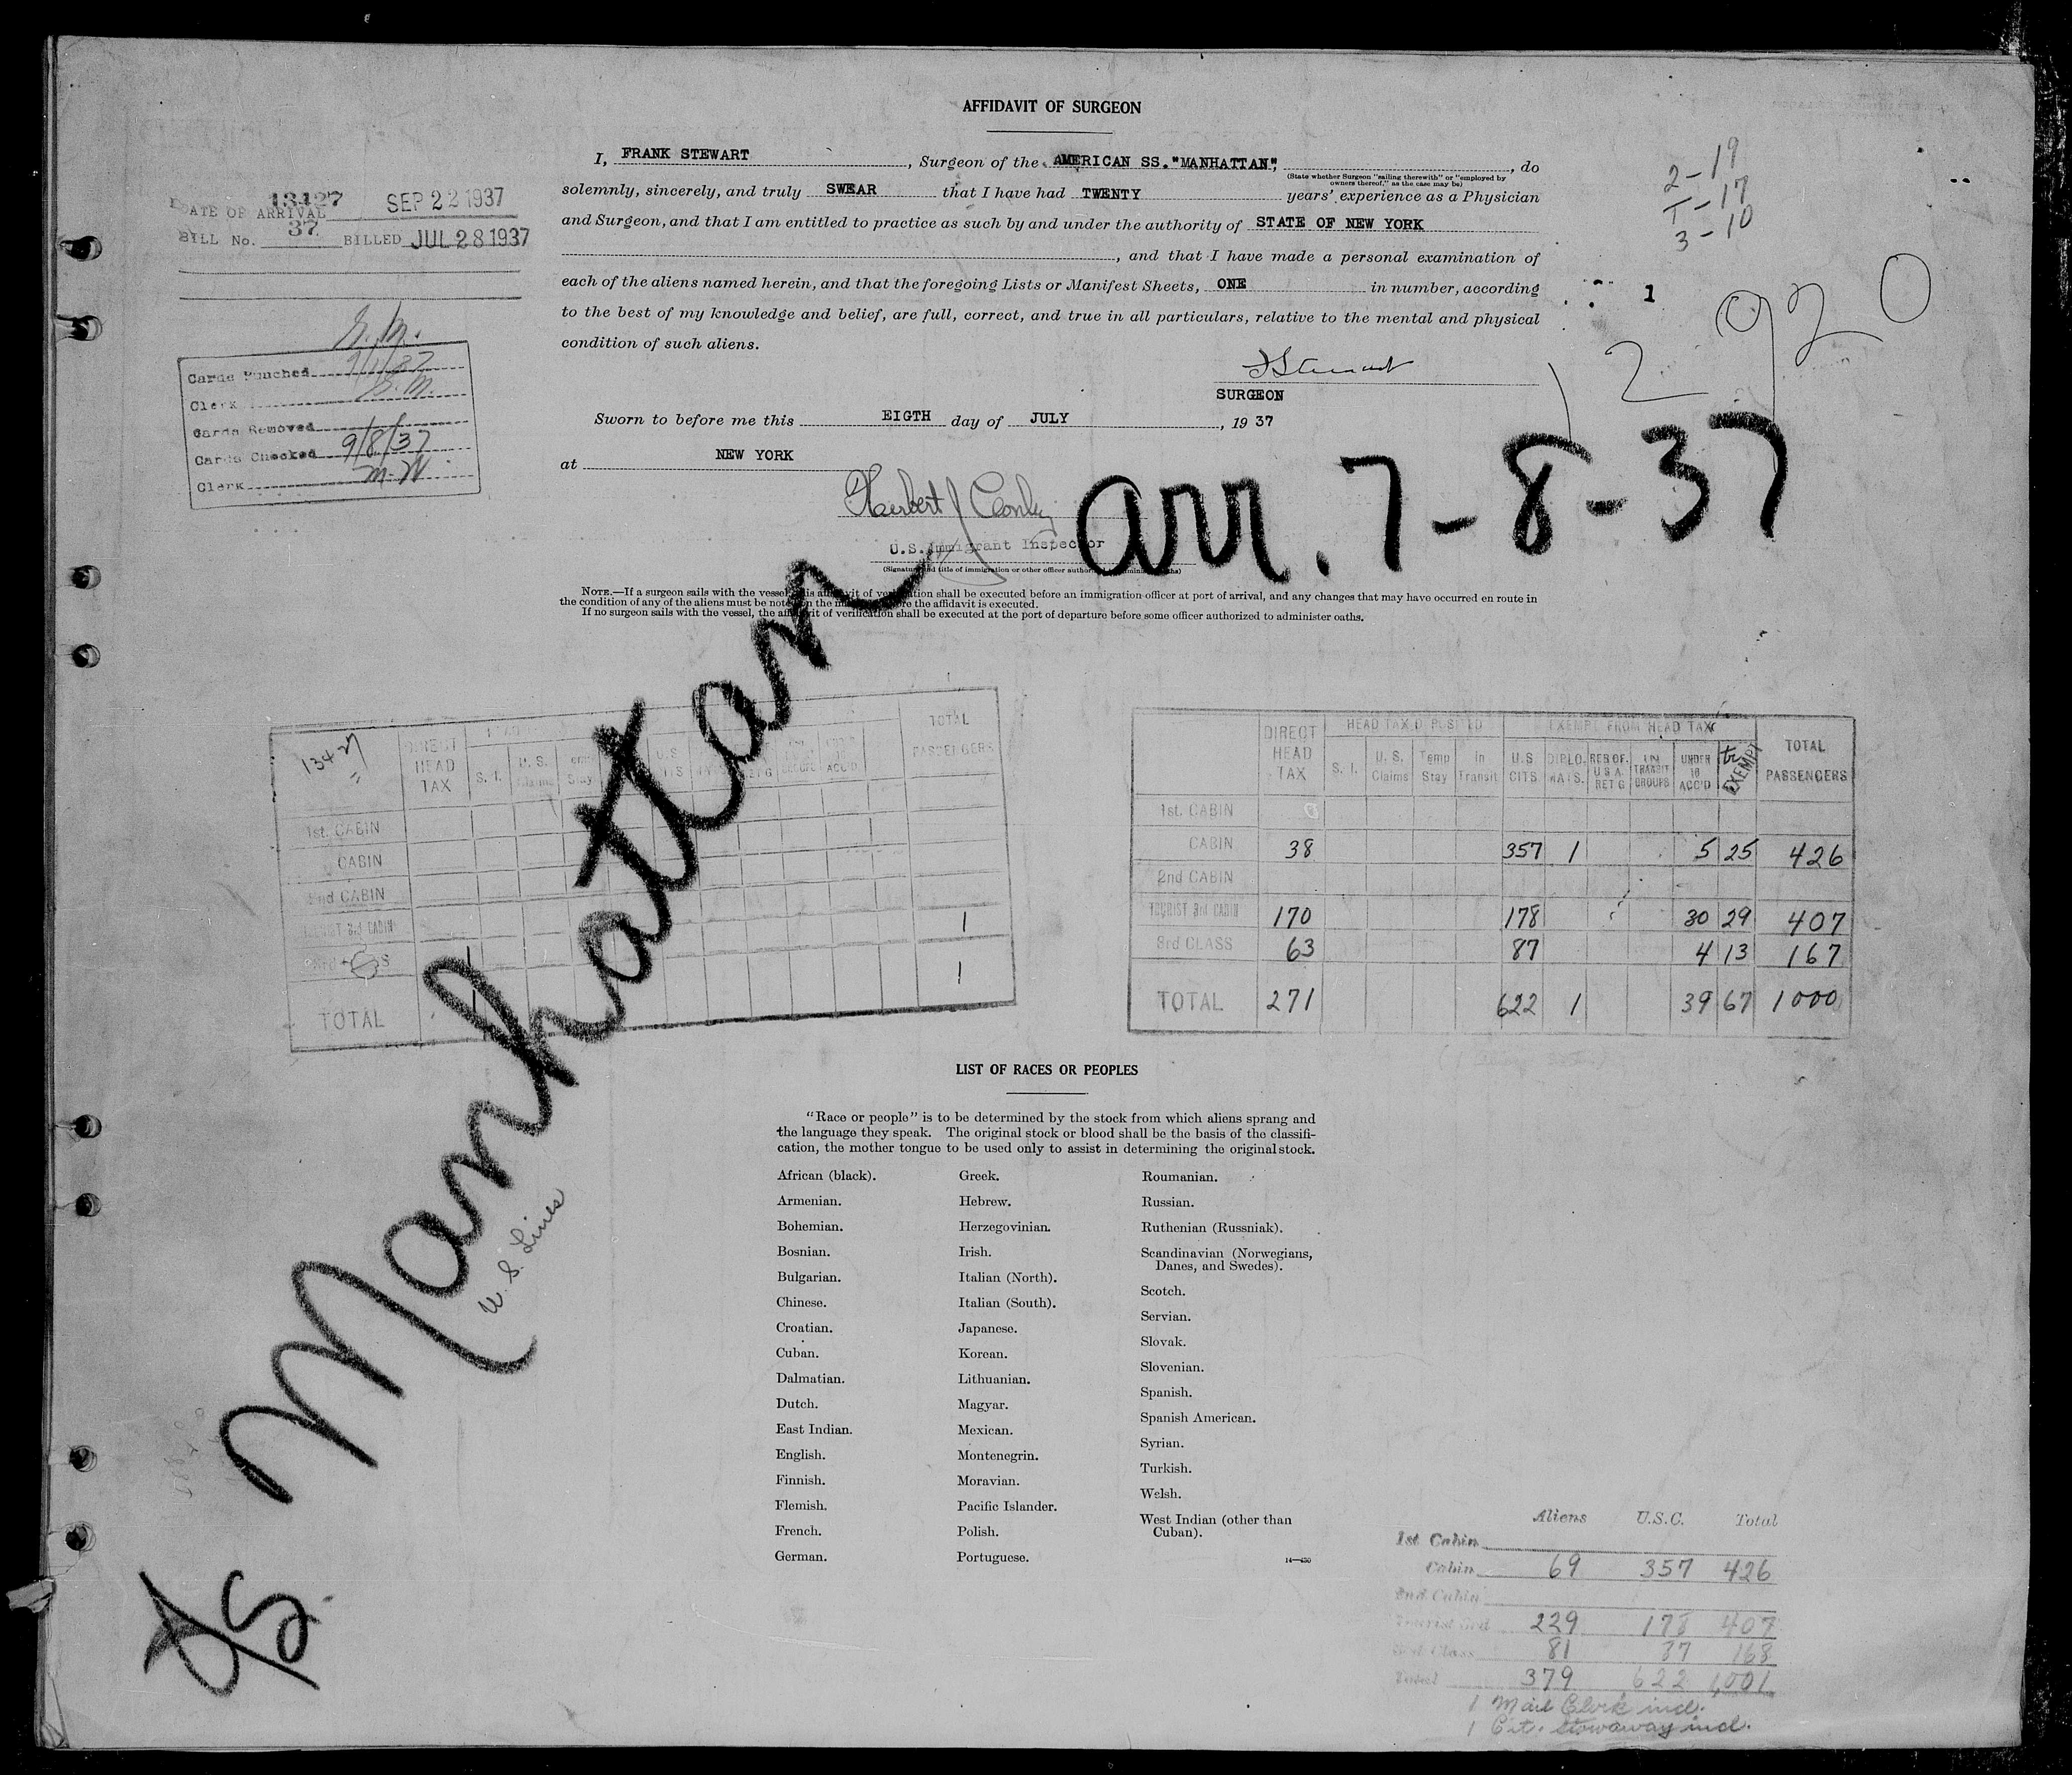 AFFIDAVIT OF SURGEON
I, FRANK STEWART, Surgeon of the AMERICAN SS. "MANHATTAN", do
(State whether Surgeon "sailing therewith" or "employed by
owners thereof," as the case may be)
solemnly, sincerely, and truly SWEAR that I have had TWENTY years' experience as a Physician
and Surgeon, and that I am entitled to practice as such by and under the authority of STATE OF NEW YORK
, and that I have made a personal examination of
each of the aliens named herein, and that the foregoing Lists or Manifest Sheets, ONE in number, according
to the best of my knowledge and belief, are full, correct, and true in all particulars, relative to the mental and physical
condition of such aliens.
F Stewart
SURGEON
Sworn to before me this EIGTH day of JULY, 19 37
at NEW YORK
Herbert J Conley
U.S. Immigrant Inspector
13427
DATE OF ARRIVAL SEP 22 1937
BILL No. 37 BILLED JUL 28 1937
Cards Punched
Clerk
Cards Removed
Cards Checked 9/8/37
Clerk M.W
2-19
T-17
3-10
1
12920
arr. 7-8-37
NOTE.—If a surgeon sails with the vessel, this affidavit of verification shall be executed before an immigration officer at port of arrival, and any changes that may have occurred en route in
the condition of any of the aliens must be noted on the before the affidavit is executed.
If no surgeon sails with the vessel, the affidavit of verification shall be executed at the port of departure before some officer authorized to administer oaths.
SS. Manhattan
U.S. Lines
13427
DIRECT HEAD TAX S. I. U. S. Claims TOTAL PASSENGERS
1st. CABIN
CABIN
2nd CABIN
TOURIST 3rd CABIN 1
1
TOTAL 1 1
DIRECT HEAD TAX HEAD TAX DEPOSITED S. I. U. S. Claims Temp Stay In Transit EXEMPT FROM HEAD TAX U.S CITS DIPLO. MATS. RES OF. U S A. RET'G IN TRANSIT GROUPS UNDER 16 ACC'D EXEMPT TOTAL PASSENGERS
1st. CABIN
CABIN 38 357 1 5 25 426
2nd CABIN
TOURIST 3rd CABIN 170 178 30 29 407
3rd CLASS 63 87 4 13 167
TOTAL 271 622 1 39 67 1000
LIST OF RACES OR PEOPLES
"Race or people" is to be determined by the stock from which aliens sprang and
the language they speak. The original stock or blood shall be the basis of the classifi-
cation, the mother tongue to be used only to assist in determining the original stock.
African (black).
Armenian.
Bohemian.
Bosnian.
Bulgarian.
Chinese.
Croatian.
Cuban.
Dalmatian.
Dutch.
East Indian.
English.
Finnish.
Flemish.
French.
German.
Greek.
Hebrew.
Herzegovinian.
Irish.
Italian (North).
Italian (South).
Japanese.
Korean.
Lithuanian.
Magyar.
Mexican.
Montenegrin.
Moravian.
Pacific Islander.
Polish.
Portuguese.
Roumanian.
Russian.
Ruthenian (Russniak).
Scandinavian (Norwegians,
Danes, and Swedes).
Scotch.
Servian.
Slovak.
Slovenian.
Spanish.
Spanish American.
Syrian.
Turkish.
Welsh.
West Indian (other than
Cuban).
Aliens U.S.C. Total
1st Cabin
Cabin 69 357 426
2nd Cabin
Tourist 3rd 229 178 407
3rd Class 81 87 168
Total 379 622 1,001
1 Mail Clerk incl.
1 Cit. stowaway incl.